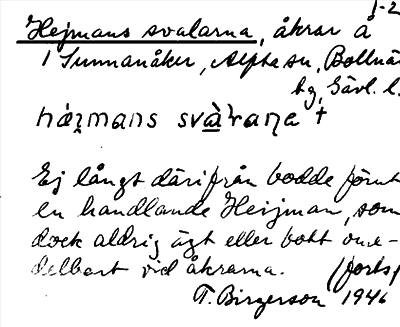 1-2
Hejmans svalarna, åkrar å
1 Sunnanåker, Alfta sn, Bollnäs
bg, Gävl. l.
hæ̀imans svàrana †
Ej långt därifrån bodde förut
en handlande Heijman, som
dock aldrig ägt eller bott ome-
delbart vid åkrarna. (forts)
T. Birgerson 1946